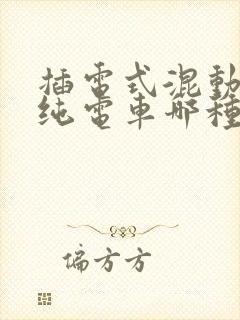 插電式混動
纯電車哪種
偏方方